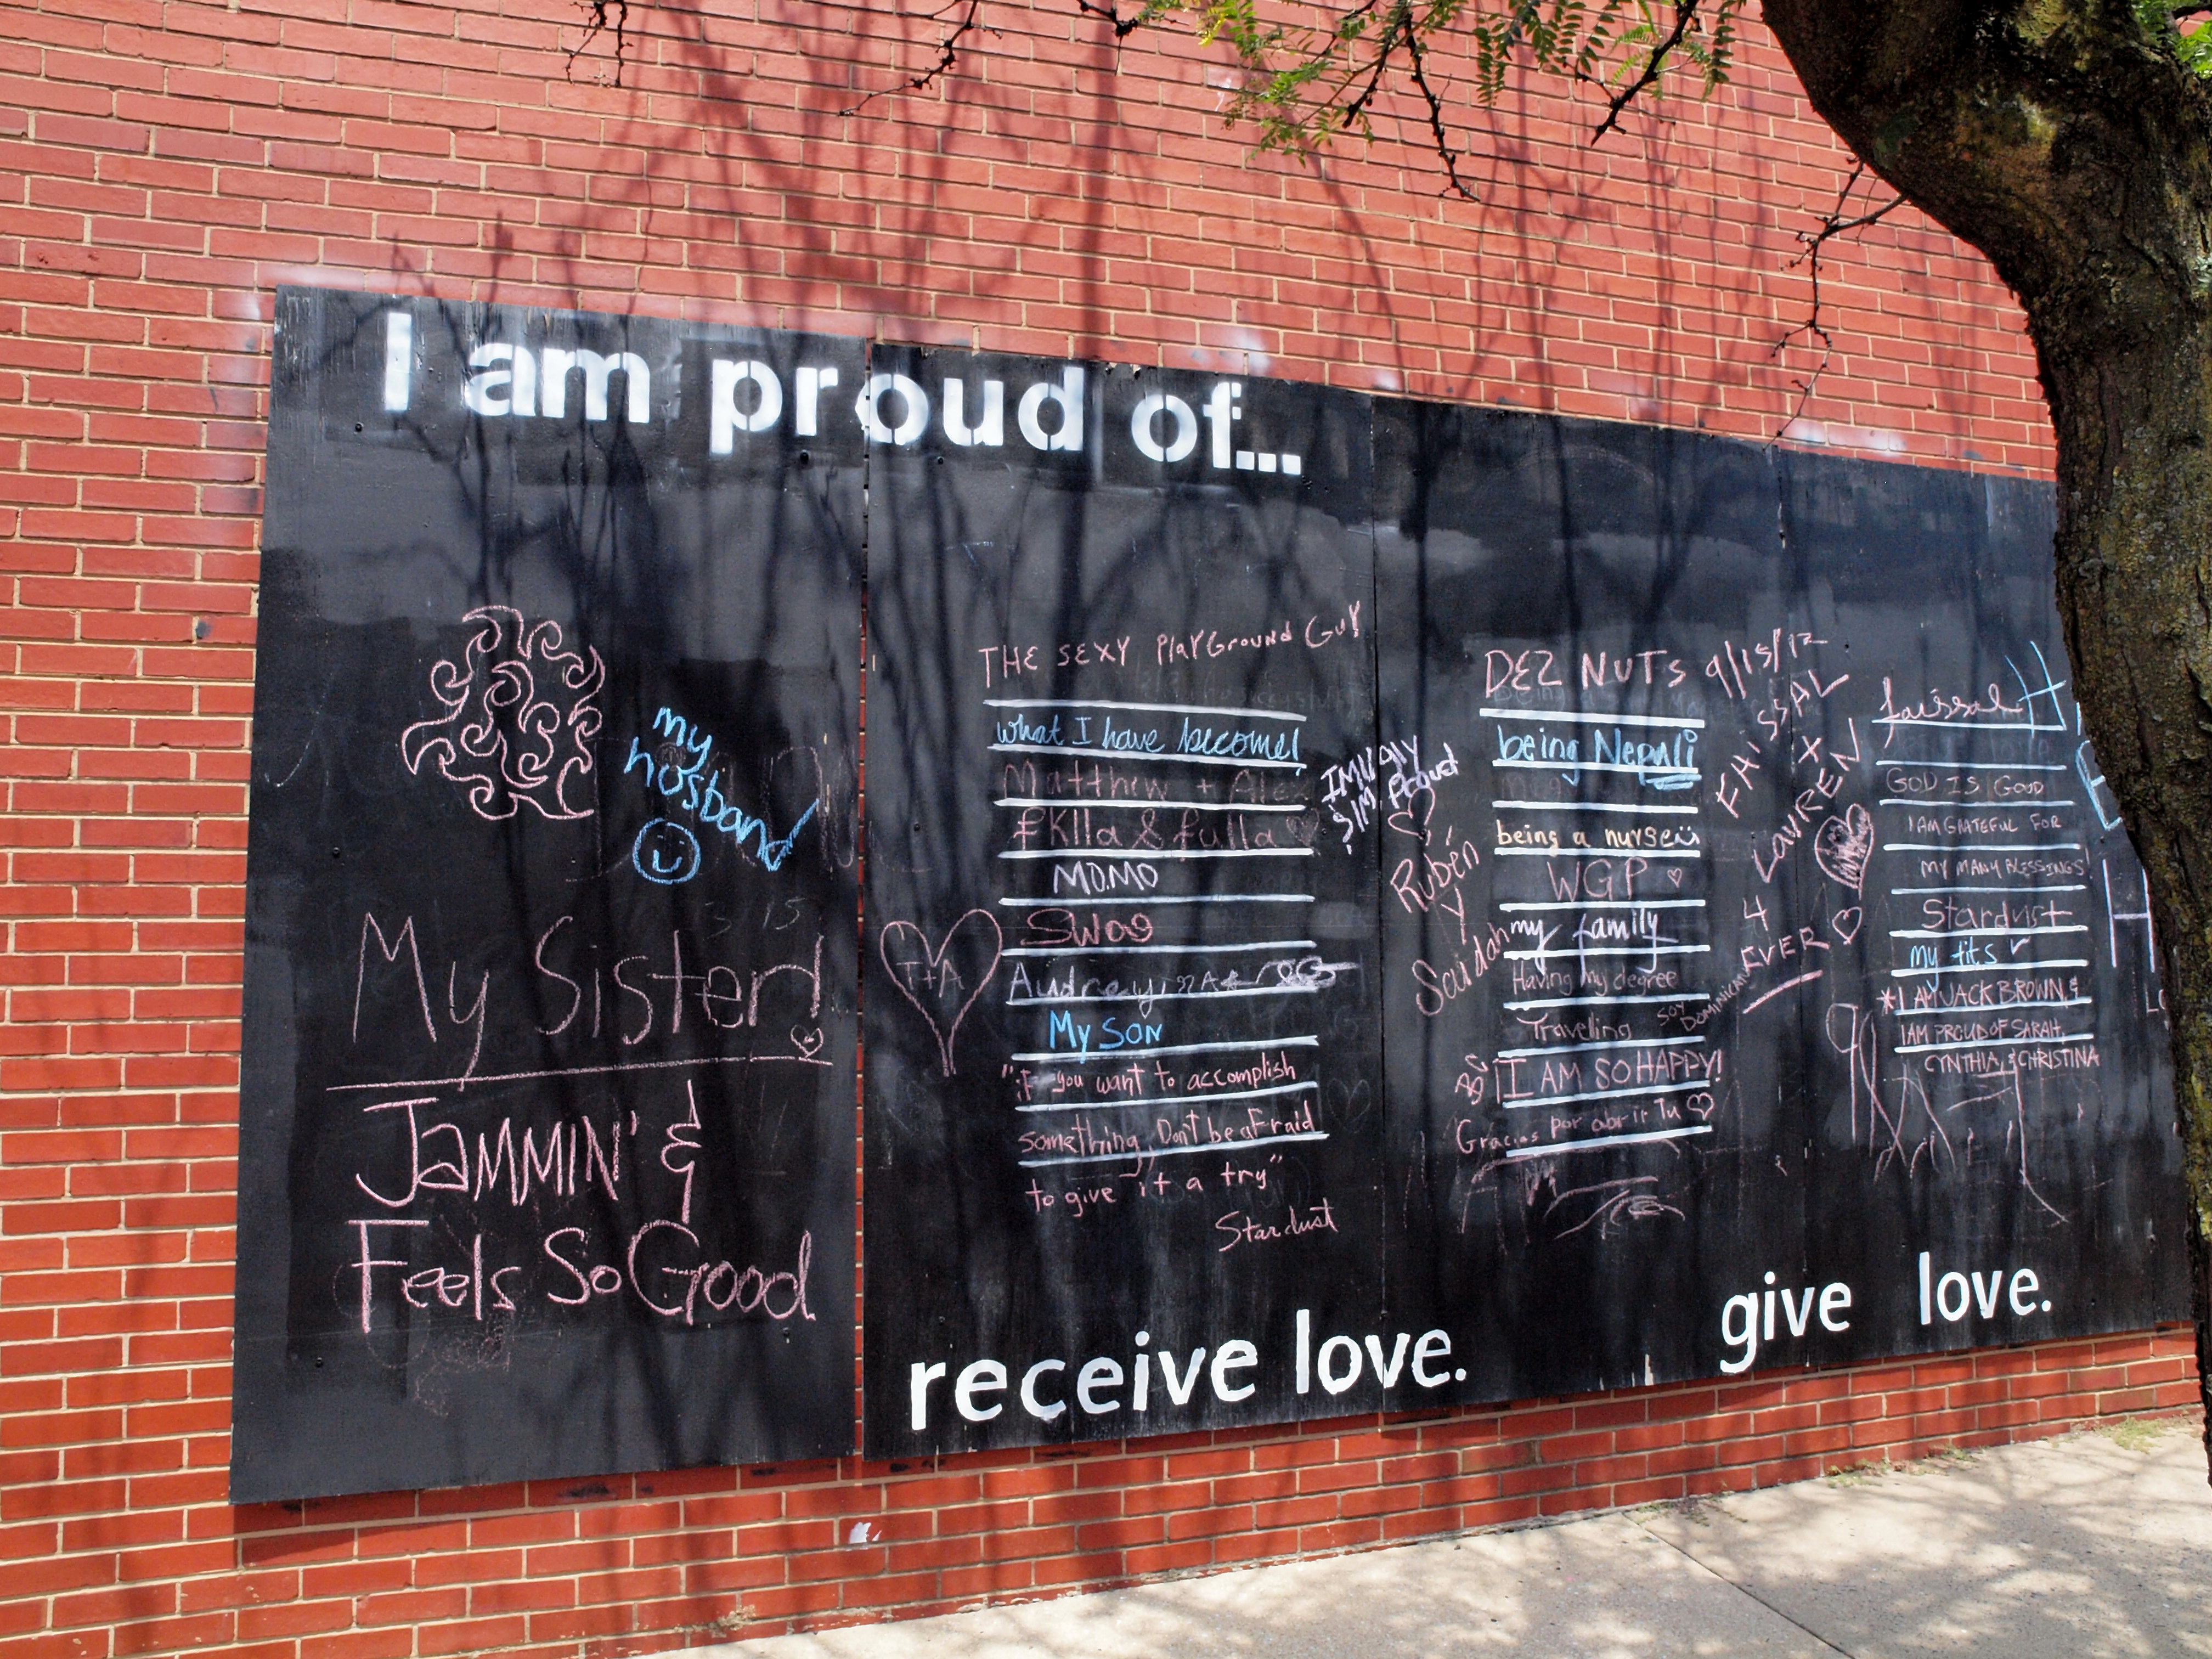 I am proud of...
my
hosband
My Sister!
JAMMIN' &
Feels So Good
THE SEXY PlAYGround GuY
what I have become!
Matthew + Alex
fKlla & fulla
MOMO
SWag
T+A
My SON
"if you want to accomplish
something, Don't be aFraid
to give it a try"
Stardust
Proud
Rubén
Y
DEZ NUTS 9/15/12
being Nepali
being a nurse
WGP
my family
Having my degree
Traveling
SOY
DOMINICANA
I AM SO HAPPY!
Gracias por abrir Tu
FAISSAL
X
LAUREN
4
EVER
faissal
GOD IS GOOD
I AM GRATEFUL FOR
MY MANY BLESSINGS!
Stardust
my tits
* I AM JACK BROWN, &
I AM PROUD OF SARAH,
CYNTHIA, & CHRISTINA
receive love.
give love.